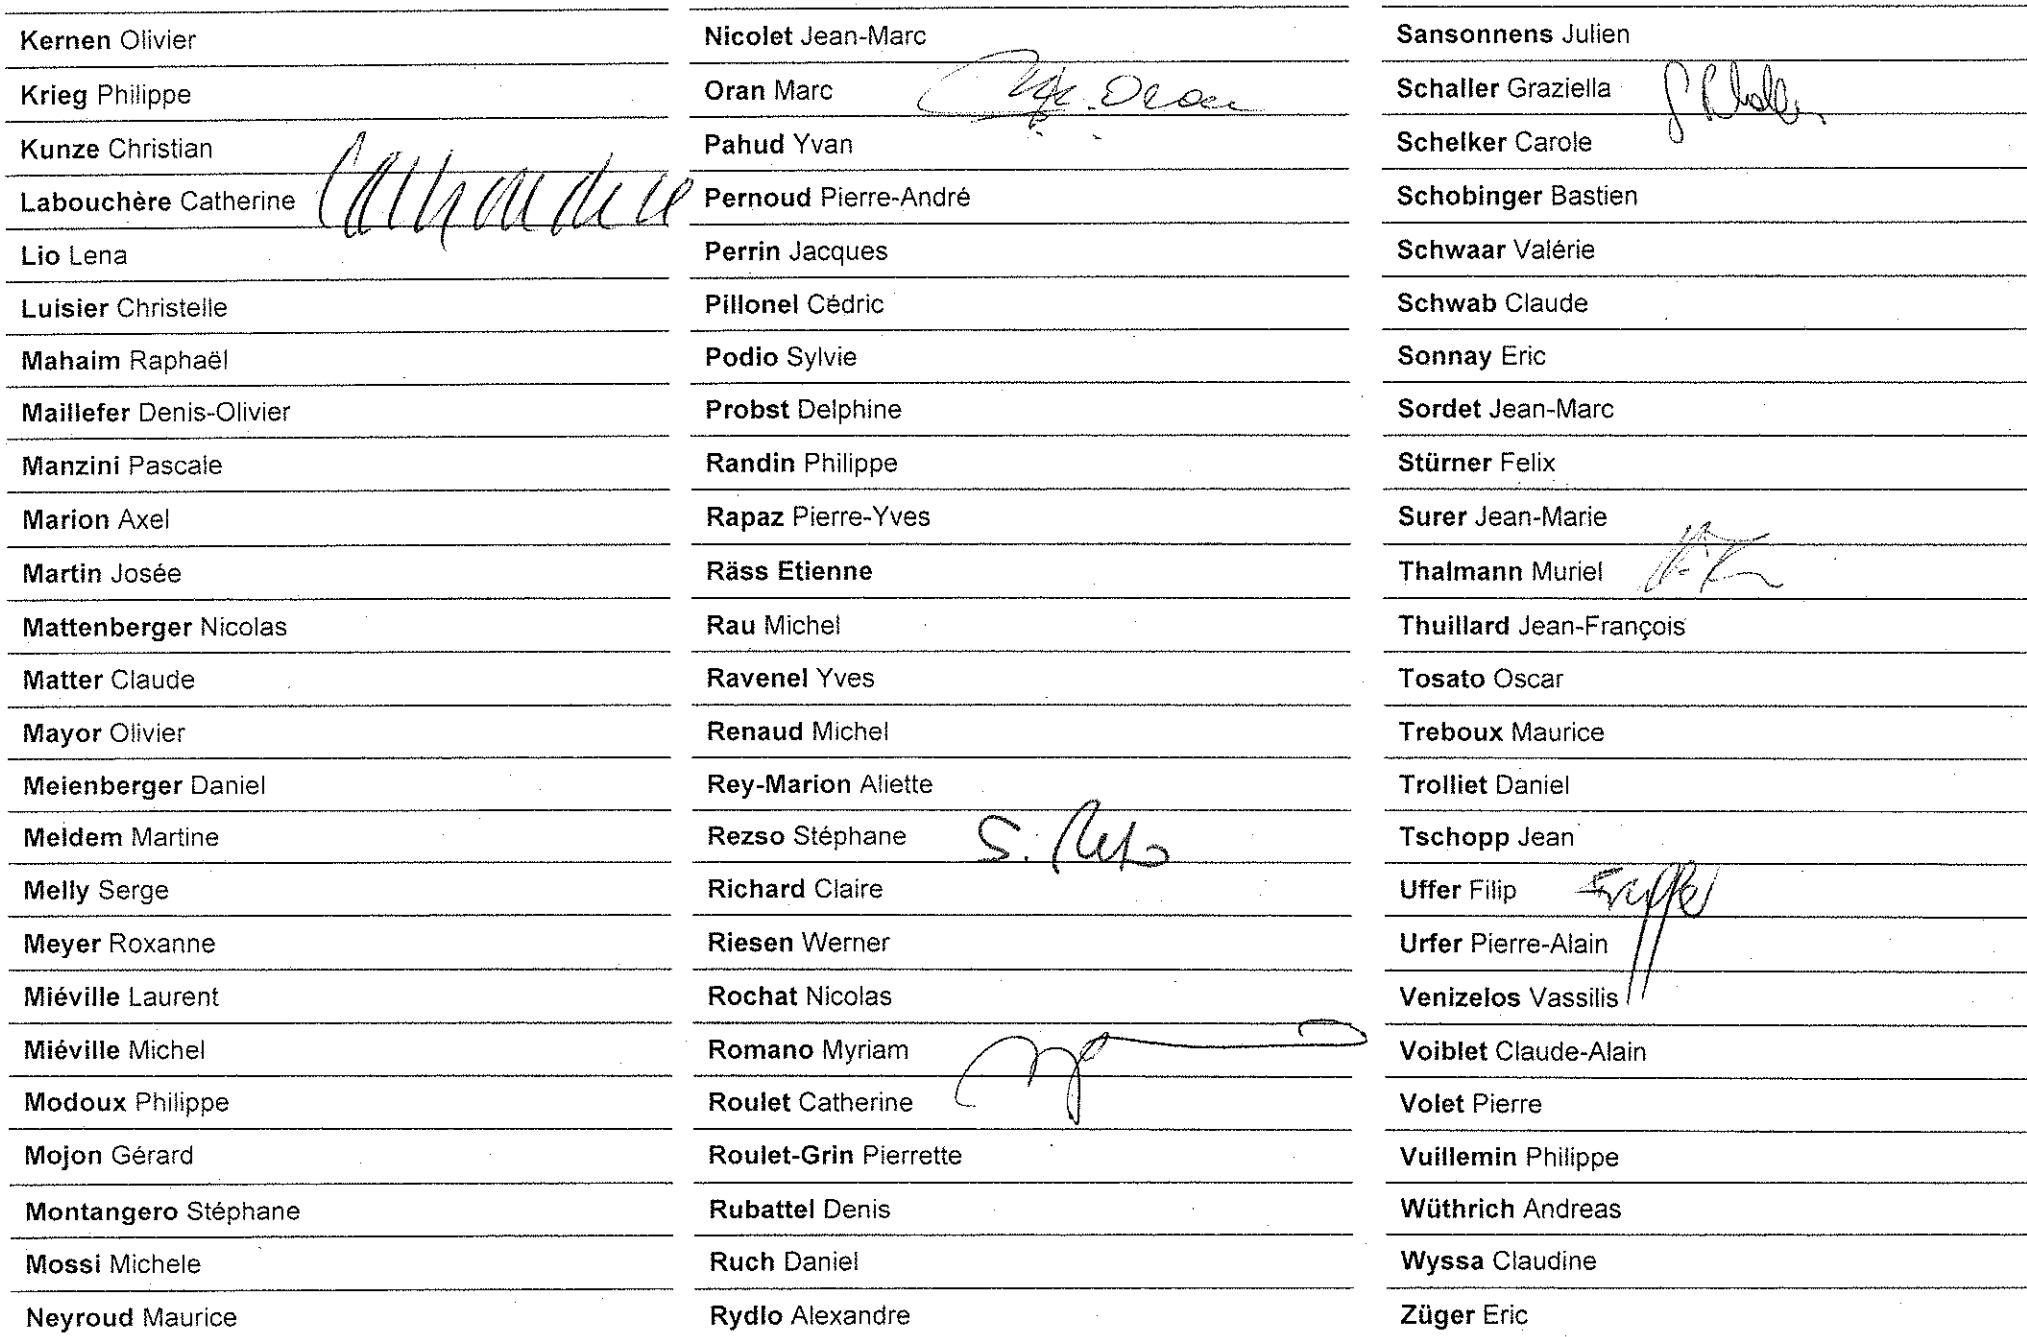 Kernen Olivier
Krieg Philippe
Kunze Christian
Labouchère Catherine
Lio Lena
Luisier Christelle
Mahaim Raphaël
Maillefer Denis-Olivier
Manzini Pascale
Marion Axel
Martin Josée
Mattenberger Nicolas
Matter Claude
Mayor Olivier
Meienberger Daniel
Meldem Martine
Melly Serge
Meyer Roxanne
Miéville Laurent
Miéville Michel
Modoux Philippe
Mojon Gérard
Montangero Stéphane
Mossi Michele
Neyroud Maurice
Nicolet Jean-Marc
Oran Marc
Pahud Yvan
Pernoud Pierre-André
Perrin Jacques
Pillonel Cédric
Podio Sylvie
Probst Delphine
Randin Philippe
Rapaz Pierre-Yves
Räss Etienne
Rau Michel
Ravenel Yves
Renaud Michel
Rey-Marion Aliette
Rezso Stéphane
Richard Claire
Riesen Werner
Rochat Nicolas
Romano Myriam
Roulet Catherine
Roulet-Grin Pierrette
Rubattel Denis
Ruch Daniel
Rydlo Alexandre
Sansonnens Julien
Schaller Graziella
Schelker Carole
Schobinger Bastien
Schwaar Valérie
Schwab Claude
Sonnay Eric
Sordet Jean-Marc
Stürner Felix
Surer Jean-Marie
Thalmann Muriel
Thuillard Jean-François
Tosato Oscar
Treboux Maurice
Trolliet Daniel
Tschopp Jean
Uffer Filip
Urfer Pierre-Alain
Venizelos Vassilis
Voiblet Claude-Alain
Volet Pierre
Vuillemin Philippe
Wüthrich Andreas
Wyssa Claudine
Züger Eric